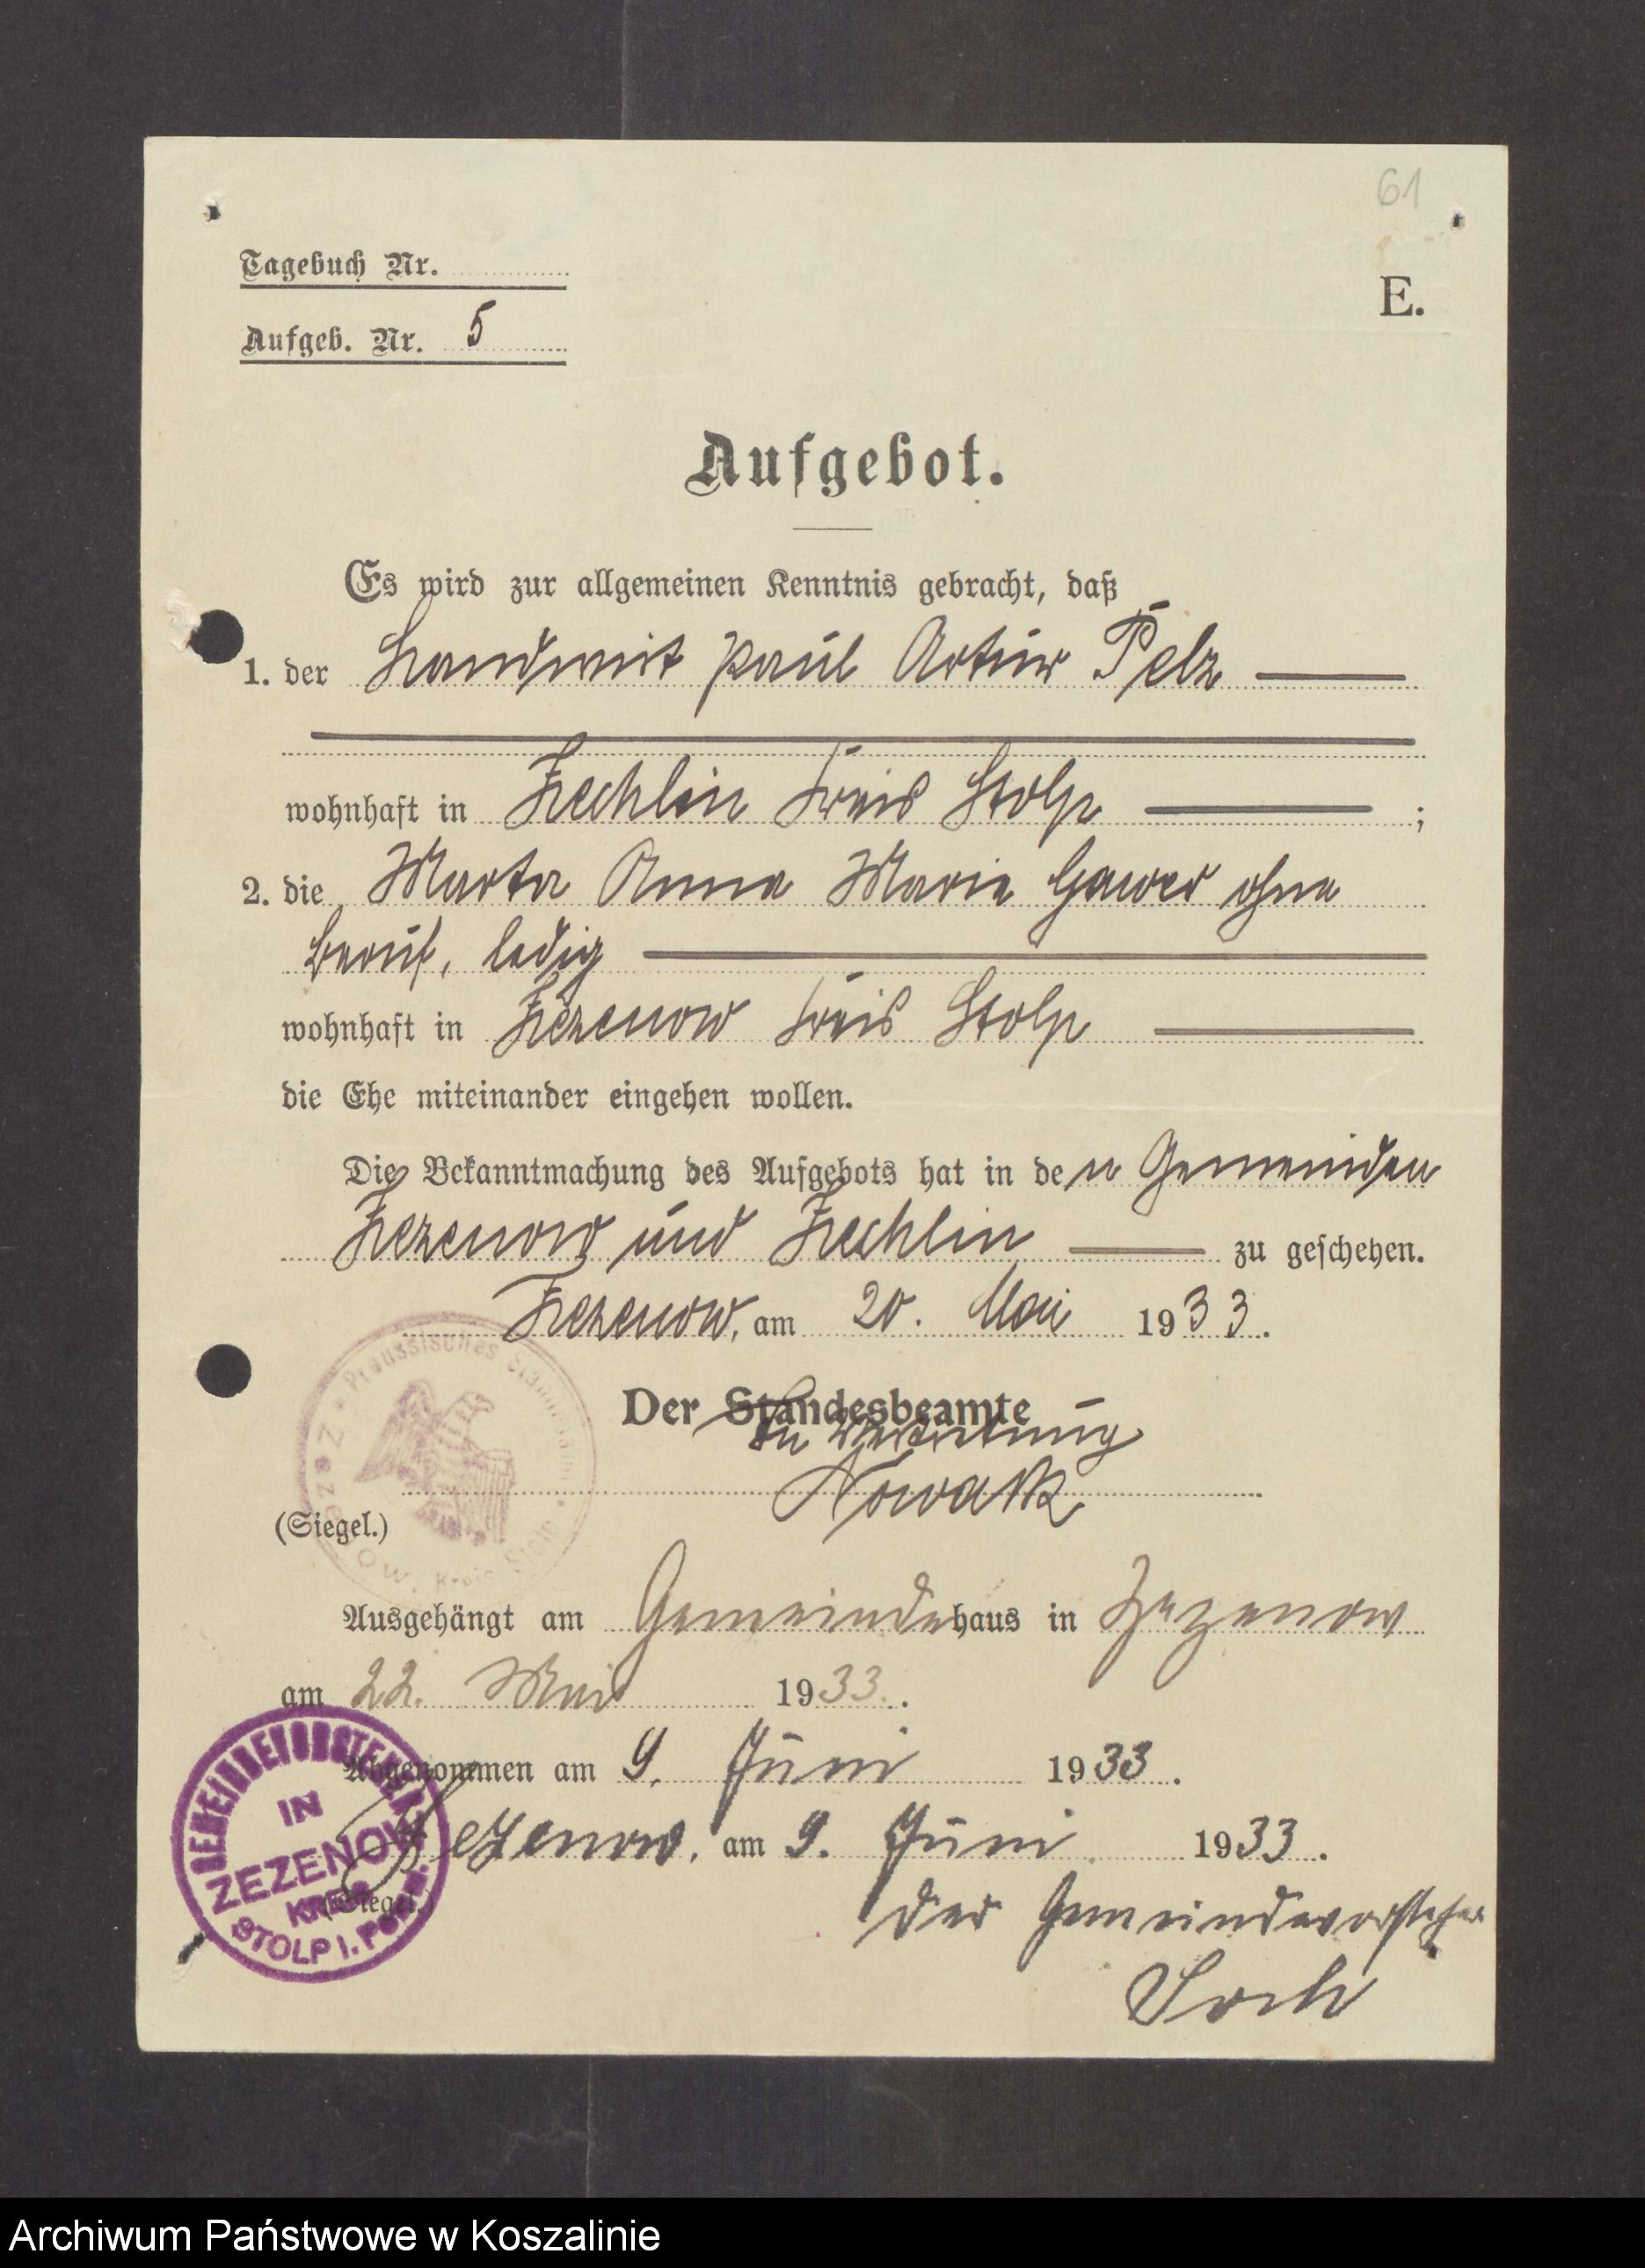 61
Tagebuch Nr.
E.
Aufgeb. Nr. 5
Aufgebot.
Es wird zur allgemeinen Kenntnis gebracht, daß
1. der Landwirt Paul Artur Pelz
wohnhaft in Zechlin Kreis Stolp ;
2. die Marta Anna Marie Gawer ohne
Beruf, ledig
wohnhaft in Zezenow Kreis Stolp
die Ehe miteinander eingehen wollen.
Die Bekanntmachung des Aufgebots hat in den Gemeinden
Zezenow und Zechlin zu geschehen.
Zezenow, am 20. Mai 1933.
Preussisches Standesamt
Zezenow, Kreis Stolp
Der Standesbeamte
In Vertretung
Nowakk
(Siegel.)
Ausgehängt am Gemeindehaus in Zezenow
am 22. Mai 1933.
Abgenommen am 9. Juni 1933.
Zezenow, am 9. Juni 1933.
GEMEINDEVORSTEHER
IN
ZEZENOW
KREIS
STOLP I. POMM.
(Siegel.)
Der Gemeindevorsteher
Archiwum Państwowe w Koszalinie